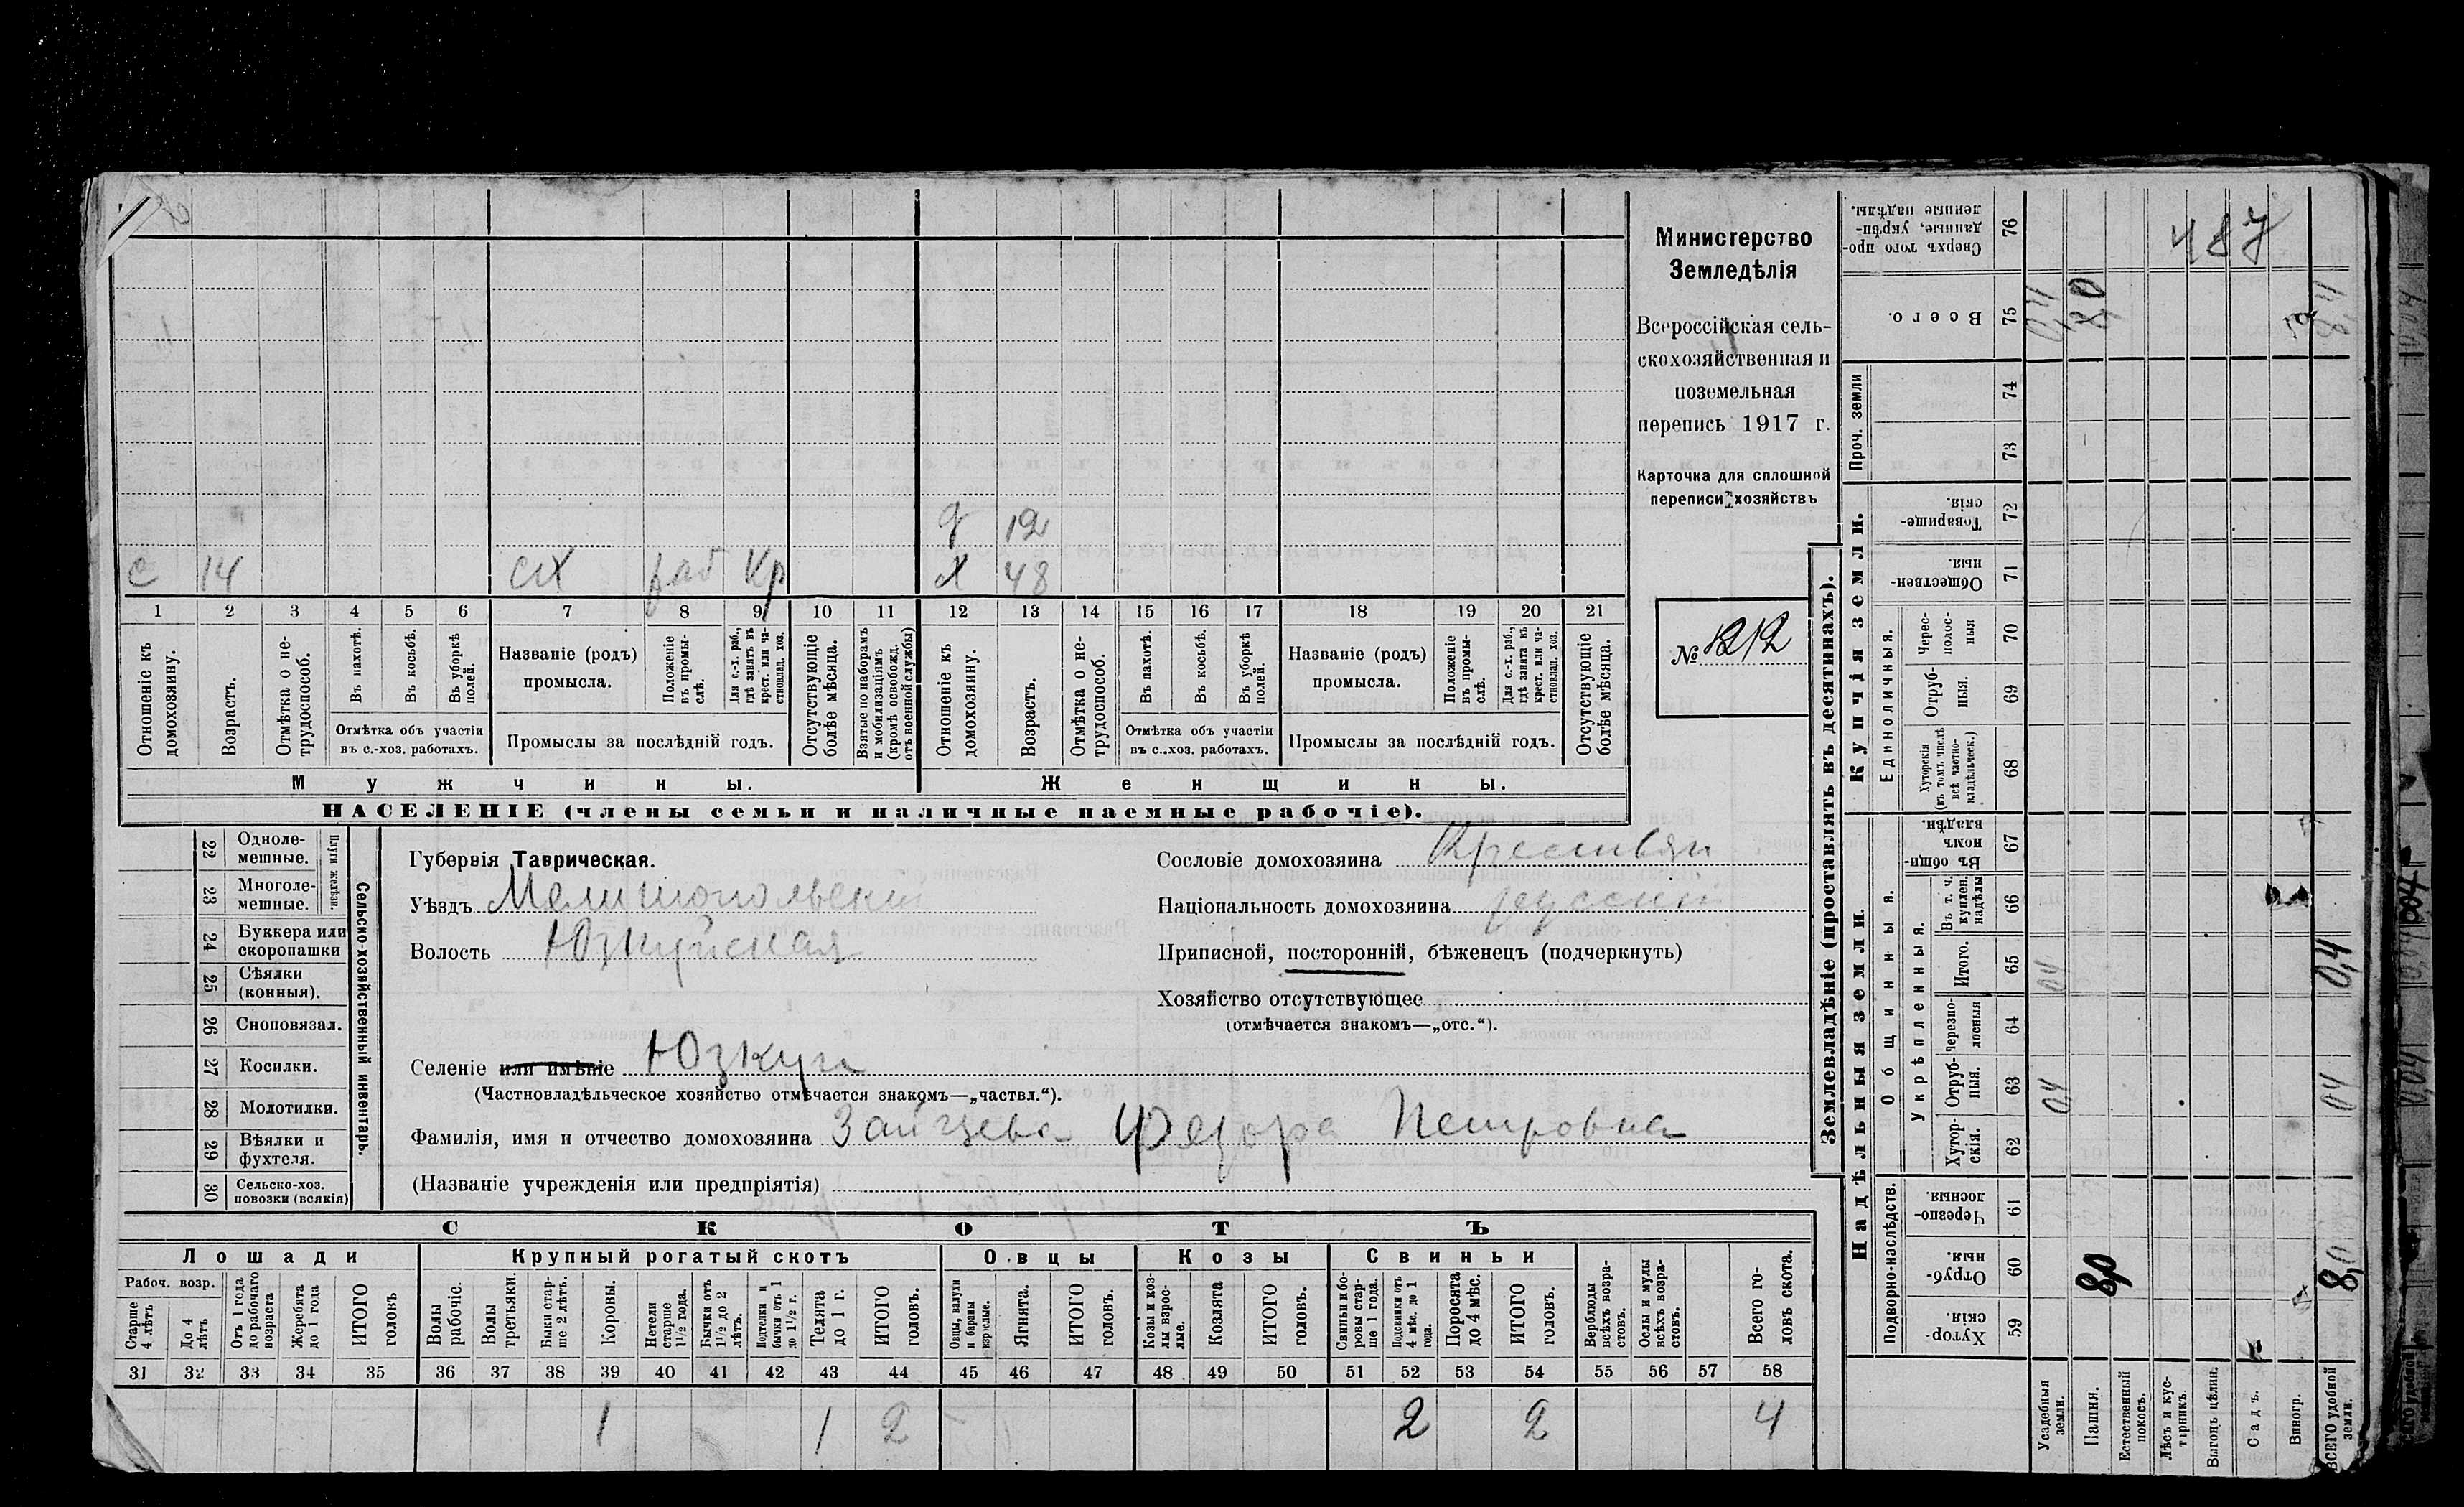 Министерство
Земледѣлія
Всероссійская сель-
скохозяйственная и
поземельная
перепись 1917 г.
Карточка для сплошной
переписи хозяйствъ
№ 1212
д 12
с 14 сх раб Кр х 48
1 2 3 4 5 6 7 8 9 10 11 12 13 14 15 16 17 18 19 20 21
Отношеніе къ домохозяину.
Возрастъ.
Отмѣтка о не-трудоспособ.
Въ пахотѣ.
Въ косьбѣ.
Въ уборкѣ полей.
Отмѣтка объ участіи
въ с.-хоз. работахъ.
Названіе (родъ)
промысла.
Положеніе въ промы-слѣ.
Для с.-х. раб., гдѣ занятъ въ крест. или ча-стновлад. хоз.
Промыслы за послѣдній годъ.
Отсутствующіе болѣе мѣсяца.
Взятые по наборамъ и мобилизаціямъ (кромѣ освобожд. отъ военной службы)
Отношеніе къ домохозяину.
Возрастъ.
Отмѣтка о не-трудоспособ.
Въ пахотѣ.
Въ косьбѣ.
Въ уборкѣ полей.
Отмѣтка объ участіи
въ с..хоз. работахъ.
Названіе (родъ)
промысла.
Положеніе въ промы-слѣ.
Для с.-х. раб., гдѣ занята въ крест. или ча-стновлад. хоз.
Промыслы за послѣдній годъ.
Отсутствующіе болѣе мѣсяца.
Мужчины. Женщины.
НАСЕЛЕНІЕ (члены семьи и наличные наемные рабочіе).
Сельско-хозяйственный инвентарь.
Плуги желѣзн.
22 Одноле-мешные.
23 Многоле-мешные.
24 Буккера или скоропашки
25 Сѣялки (конныя).
26 Сноповязал.
27 Косилки.
28 Молотилки.
29 Вѣялки и фухтеля.
30 Сельско-хоз. повозки (всякія)
Губернія Таврическая.
Уѣздъ Мелитопольскій
Волость Юзкуйская
Селеніе или имѣніе Юзкуи
(Частновладѣльческое хозяйство отмѣчается знакомъ—„частвл.“).
Фамилія, имя и отчество домохозяина Зайцева Федора Петровна
(Названіе учрежденія или предпріятія)
Сословіе домохозяина Крестьян
Національность домохозяина русскій
Приписной, посторонній, бѣженецъ (подчеркнуть)
Хозяйство отсутствующее
(отмѣчается знакомъ—„отс.“).
СКОТЪ
Лошади Крупный рогатый скотъ Овцы Козы Свиньи
Рабоч. возр.
Старше 4 лѣтъ
До 4 лѣтъ
Отъ 1 года до рабочаго возраста
Жеребята до 1 года
ИТОГО головъ
Волы рабочіе.
Волы третьяки.
Быки стар-ше 2 лѣтъ.
Коровы.
Нетели старше 1½ года.
Бычки отъ 1½ до 2 лѣтъ.
Подтелки и бычки отъ 1 до 1½ г.
Телята до 1 г.
ИТОГО головъ.
Овцы, валухи и бараны взрослые.
Ягнята.
ИТОГО головъ.
Козы и коз-лы взрос-лые.
Козлята
ИТОГО головъ.
Свиньи и бо-ровы стар-ше 1 года.
Подсвинки отъ 4 мѣс. до 1 года.
Поросята до 4 мѣс.
ИТОГО головъ.
Верблюды всѣхъ возра-стовъ.
Ослы и мулы всѣхъ возра-стовъ.
Всего го-ловъ скота.
31 32 33 34 35 36 37 38 39 40 41 42 43 44 45 46 47 48 49 50 51 52 53 54 55 56 57 58
1 1 2 2 2 4
Землевладѣніе (проставлять въ десятинахъ).
Надѣльныя земли. Купчія земли. Проч. земли
Подворно-наслѣдств.
Общинныя.
Укрѣпленныя.
Единоличныя.
Хутор-скія. 59
Отруб-ныя. 60
Черезпо-лосныя. 61
Хутор-скія. 62
Отруб-ныя. 63
Черезпо-лосныя 64
Итого. 65
Въ т. ч. куплен. надѣлы 66
Въ общин-номъ владѣн. 67
Хуторскія (въ томъ числѣ всѣ частно-владѣльческ.) 68
Отруб-ныя. 69
Черес-полос-ныя 70
Обществен-ныя. 71
Товарище-скія. 72
73
74
Всего. 75
Сверхъ того про-данные, укрѣп-ленные надѣлы. 76
Усадебныя земли. 04 04 0,4
Пашня. 8,0
Естественный покосъ.
Лѣсъ и кус-тарникъ.
Выгонъ цѣлин.
Садъ.
Виногр.
ВСЕГО удобной земли. 8,0 04 0,4 8,4
487